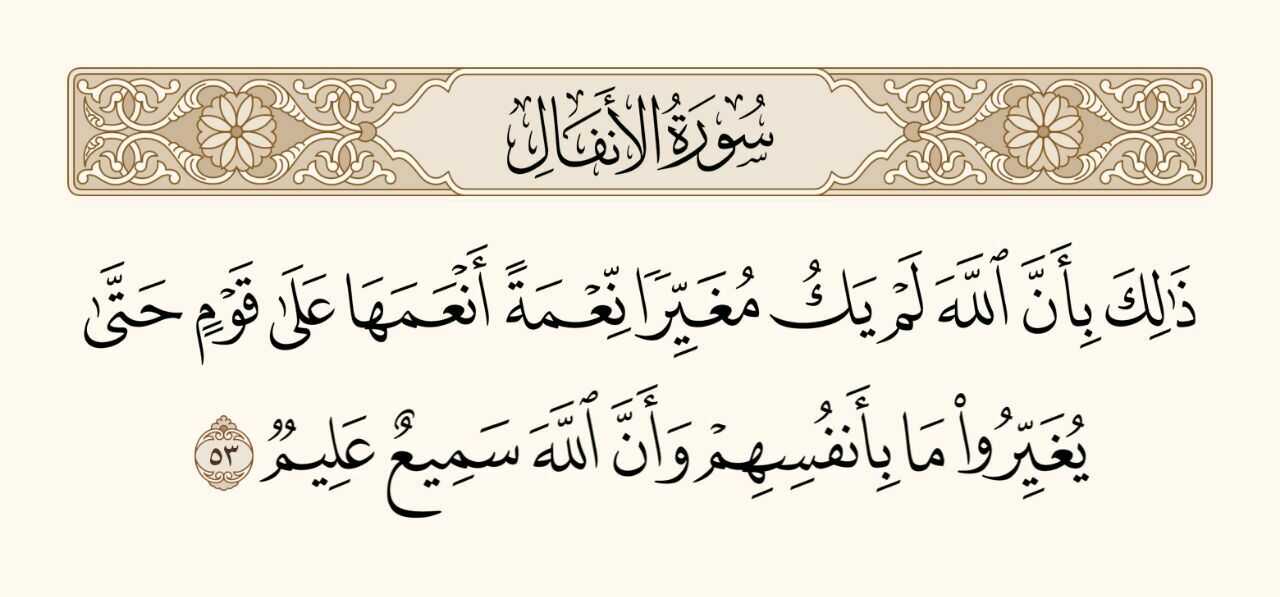 سُورَةُ الأَنفَالِ
ذَٰلِكَ بِأَنَّ ٱللَّهَ لَمۡ يَكُ مُغَيِّرٗا نِّعۡمَةً أَنۡعَمَهَا عَلَىٰ قَوۡمٍ حَتَّىٰ
يُغَيِّرُواْ مَا بِأَنفُسِهِمۡ وَأَنَّ ٱللَّهَ سَمِيعٌ عَلِيمٞ ٥٣